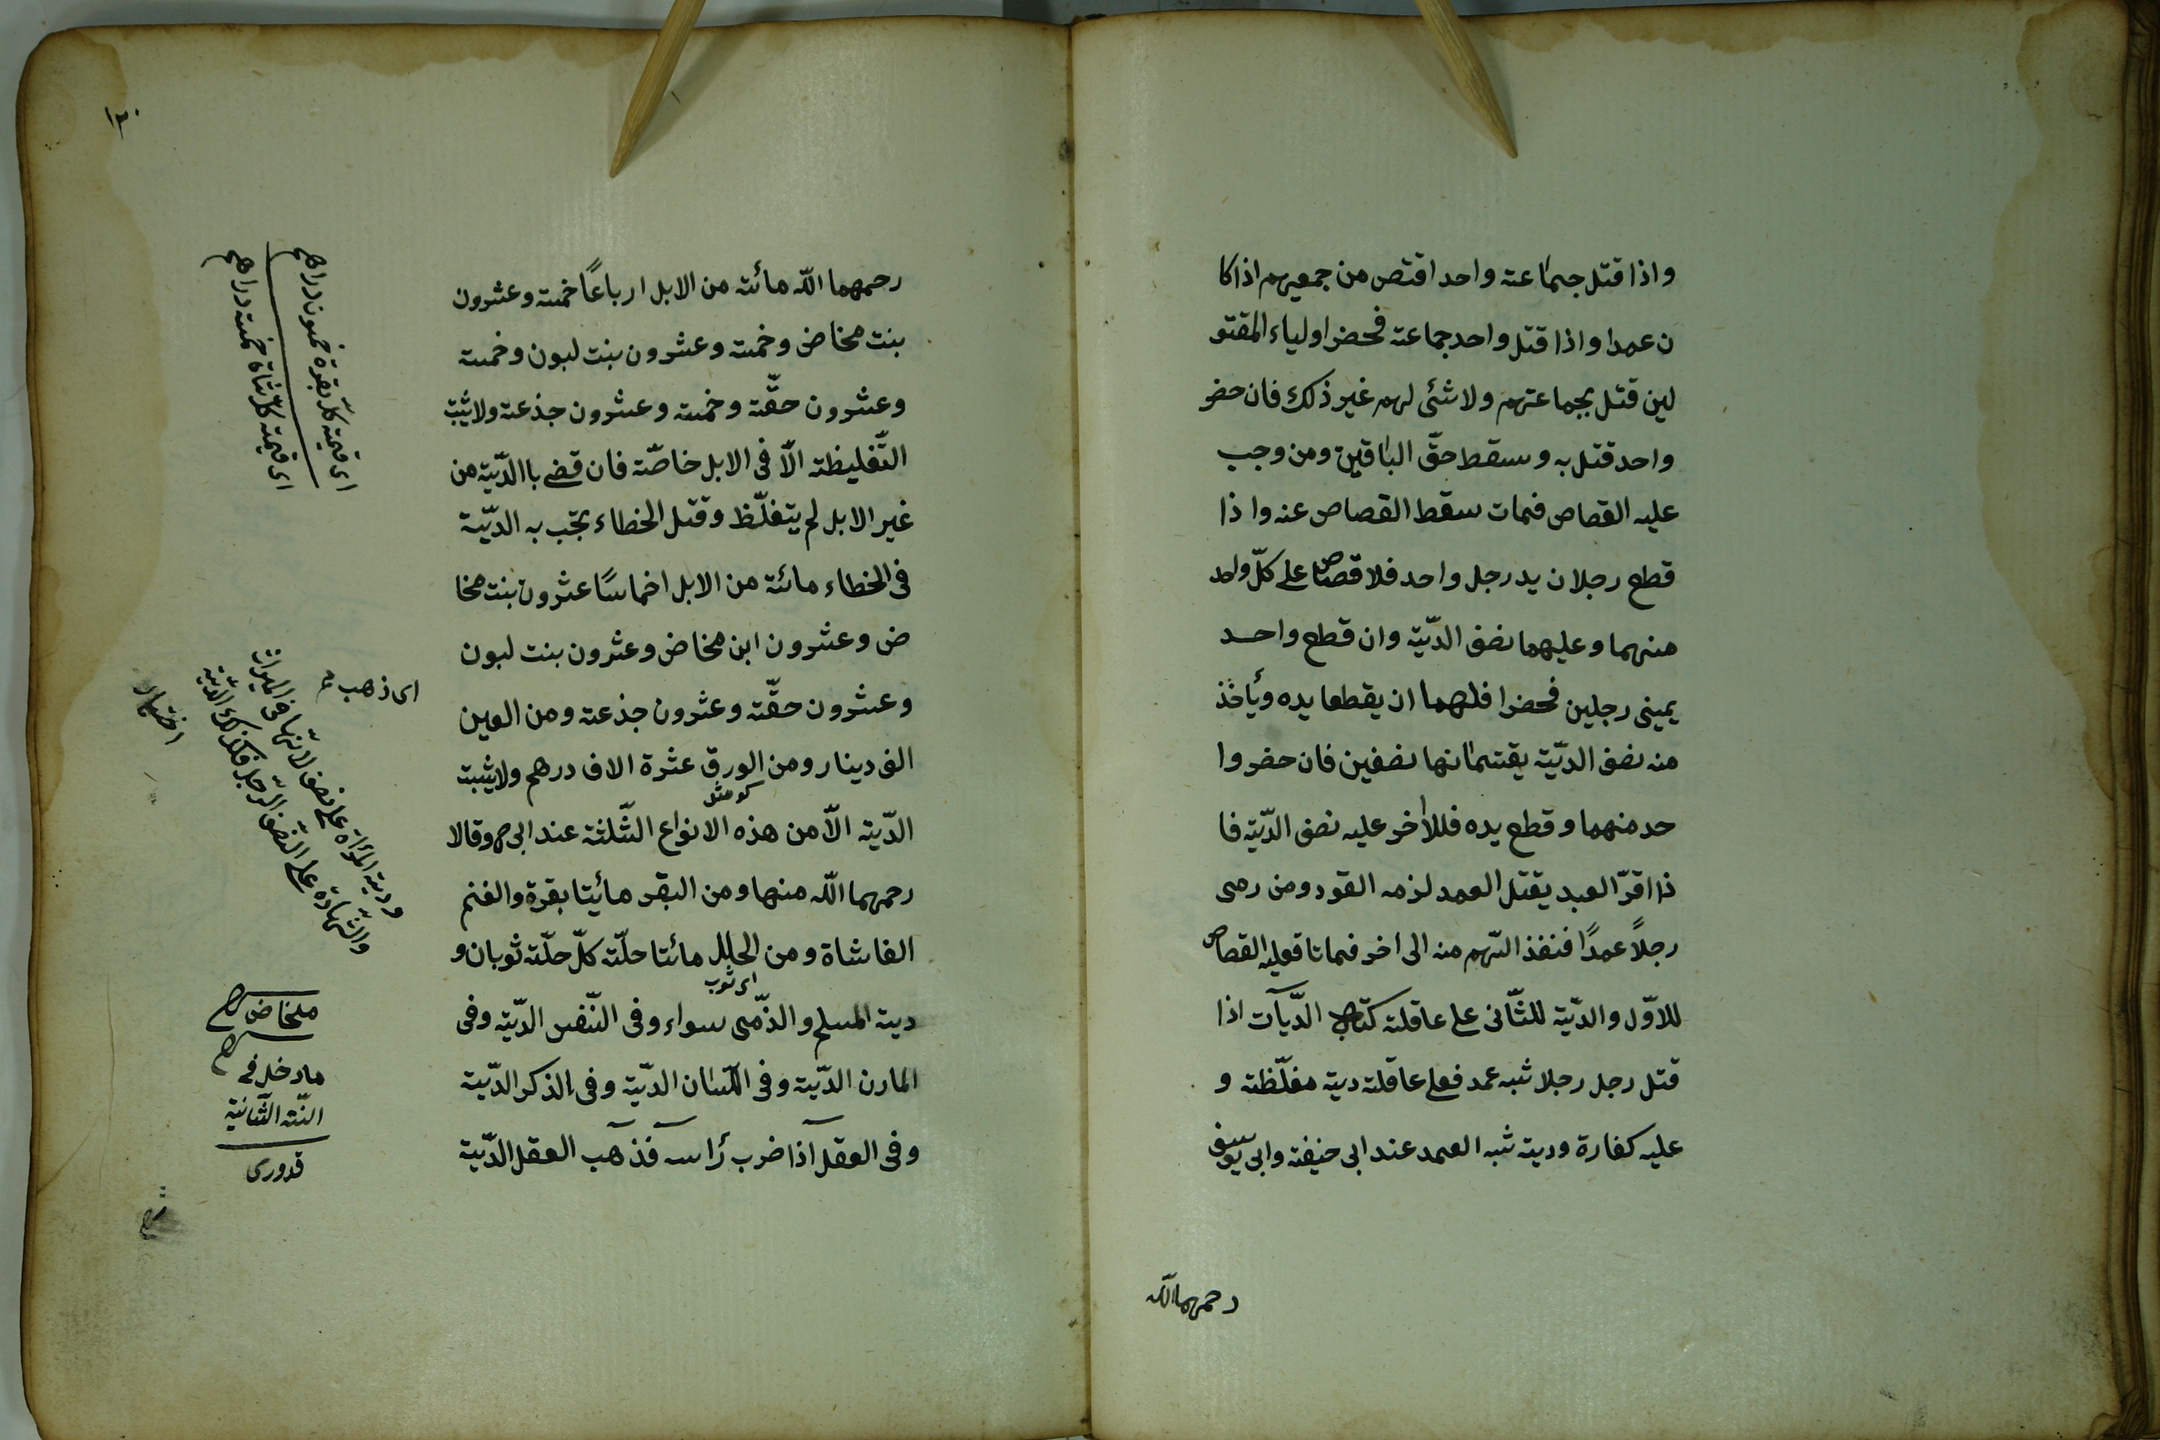 واذا قتل جماعة واحد اقتص من جميعهم اذا كا
ن عمدا واذا قتل واحد جماعة فحضر اولياء المقتو
لين قتل بجماعتهم ولا شئ لهم غير ذلك فان حضر
واحد قتل به وسقط حقّ الباقين ومن وجب
عليه القصاص فمات سقط القصاص عنه واذا
قطع رجلان يد رجل واحد فلا قصاص على كلّ واحد
منهما وعليهما نصف الدّية وان قطع واحد
يمينى رجلين فحضرا فلهما ان يقطعا يده ويأخذ
منه نصف الدّية يقتسمانها نصفين فان حضر وا
حد منهما وقطع يده فللآخر عليه نصف الدّية فا
ذا اقرّ العبد بقتل العمد لزمه القود ومن رمى
رجلاً عمدًا فنفذ السّهم منه الى اخر فماتا فعليه القصاص
للاوّل والدّية للثّانى على عاقلته كتاب الدّيات اذا
قتل رجل رجلا شبه عمد فعلى عاقلته دية مغلّظة و
عليه كفارة ودية شبه العمد عند ابى حنيفة وابى يوسف
رحمهما الله
١٣٠
رحمهما الله مائة من الابل ارباعًا خمسة وعشرون
بنت مخاض وخمسة وعشرون بنت لبون وخمسة
وعشرون حقّة وخمسة وعشرون جذعة ولا يثبت
التّغليظة الّا فى الابل خاصّة فان قضى باالدّية من
غير الابل لم يتغلّظ وقتل الخطاء يجب به الدّية
فى الخطاء مائة من الابل اخماسًا عشرون بنت مخا
ض وعشرون ابن مخاض وعشرون بنت لبون
وعشرون حقّة وعشرون جذعة ومن العين
الف دينار ومن الورق عشرة الاف درهم ولا يثبت
الدّية الّا من هذه الانواع الثّلثة عند ابى ح وقالا
رحمهما الله منها ومن البقر مائيتا بقرة والغنم
الفا شاة ومن الحلل مائتا حلّة كلّ حلّة ثوبان و
اى ثوب
دية المسلم والذّمى سواء وفى النّفس الدّية وفى
المارن الدّية وفى اللّسان الدّية وفى الذكر الدّية
وفى العقل اذا ضرب رأسه فذهب العقل الدّية
اى قيمة كلّ بقرة خمسون دراهم
اى قيمة كلّ شاة خمسة دراهم
اى ذهب
ودية المرأة على نصف لانّها فى الميراث
والشّهادة على النّصف الرّجل فكذلك الدّية
اختيار
ما دخل فى
السّنة الثّانية
قدورى